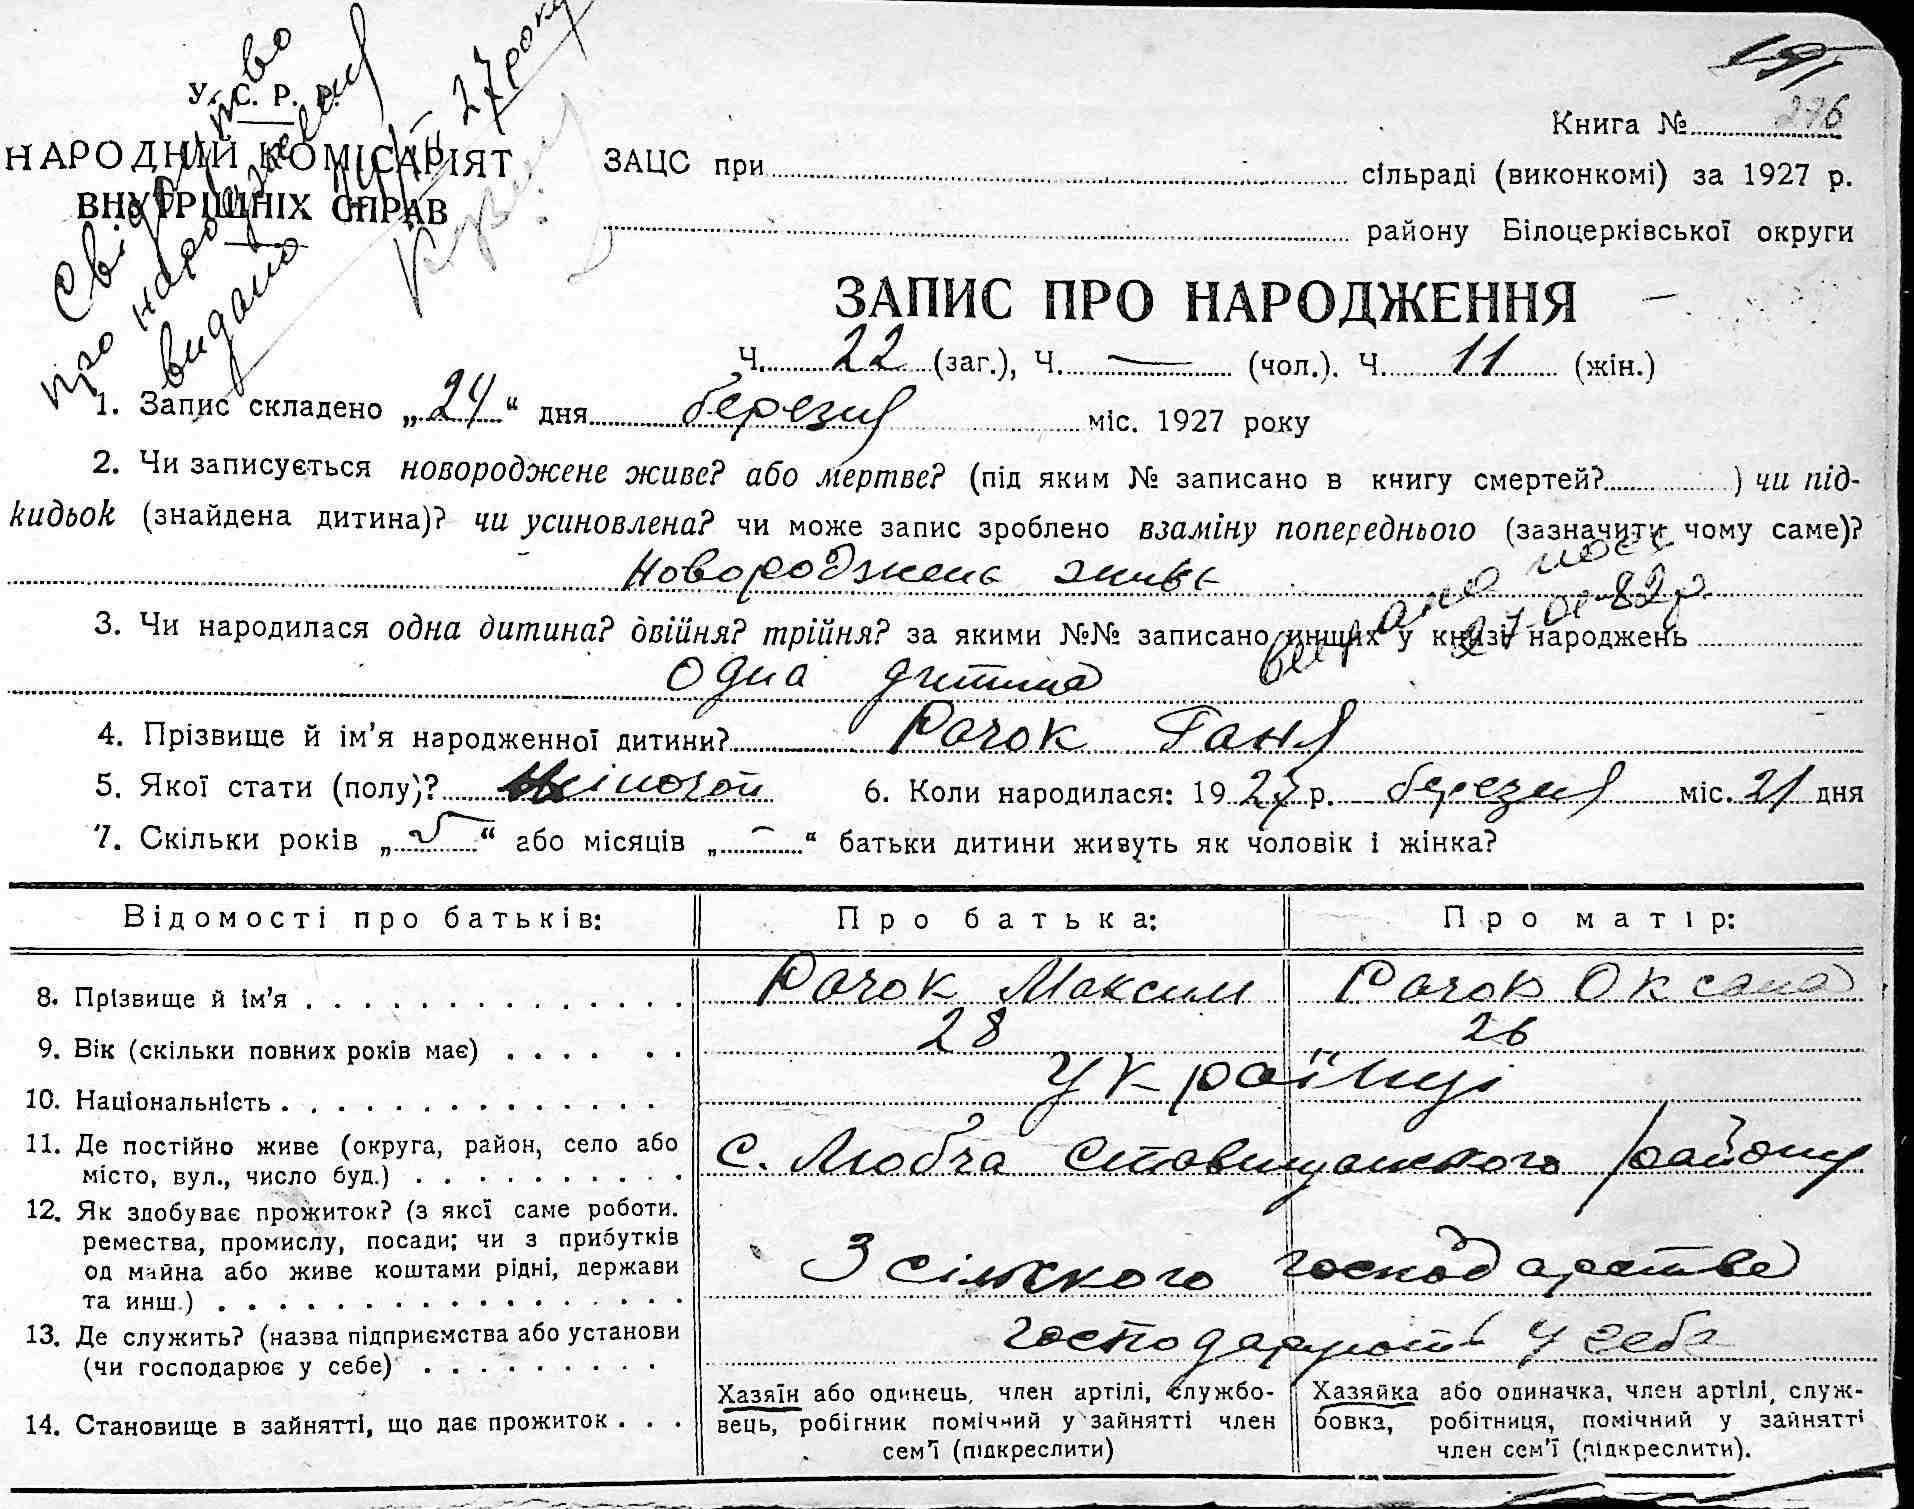 Свідоцтво
про народження
видано
27 року
У. С. Р. Р.
НАРОДНІЙ КОМІСАРІЯТ
ВНУТРІШНІХ СПРАВ
Книга № 276
ЗАЦС при сільраді (виконкомі) за 1927 р.
району Білоцерківської округи
ЗАПИС ПРО НАРОДЖЕННЯ
Ч. 22 (заг.), Ч. — (чол.). Ч. 11 (жін.)
1. Запис складено „24“ дня березня міс. 1927 року
2. Чи записується новороджене живе? або мертве? (під яким № записано в книгу смертей? ) чи під-
кидьок (знайдена дитина)? чи усиновлена? чи може запис зроблено взаміну попереднього (зазначити чому саме)?
Новороджень живе
3. Чи народилася одна дитина? двійня? трійня? за якими №№ записано инших у книзі народжень
Одна дитина
4. Прізвище й ім’я народженної дитини? Рачок Ганя
5. Якої стати (полу)? жіночой 6. Коли народилася: 1927 р. березня міс. 21 дня
7. Скільки років „5“ або місяців „—“ батьки дитини живуть як чоловік і жінка?
Відомості про батьків: Про батька: Про матір:
8. Прізвище й ім’я Рачок Максим Рачок Оксана
9. Вік (скільки повних років має) 28 26
10. Національність Українці
11. Де постійно живе (округа, район, село або
місто, вул., число буд.) С. Любча Ставищанского району
12. Як здобуває прожиток? (з якої саме роботи.
ремества, промислу, посади; чи з прибутків
од майна або живе коштами рідні, держави
та инш.) З сільского господарства
13. Де служить? (назва підприємства або установи
(чи господарює у себе) господарюють у себе
14. Становище в зайнятті, що дає прожиток
Хазяїн або одинець, член артілі, службо-
вець, робігник помічний у зайнятті член
сем’ї (підкреслити)
Хазяйка або одиначка, член артілі, служ-
бовка, робітниця, помічний у зайнятті
член сем’ї (підкреслити).